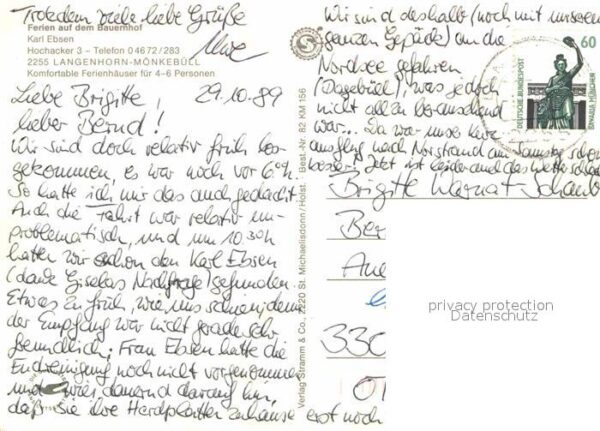 Trotzdem viele liebe Grüße
Uwe
Ferien auf dem Bauernhof
Karl Ebsen
Hochacker 3 – Telefon 0 46 72 / 283
2255 LANGENHORN-MÖNKEBÜLL
Komfortable Ferienhäuser für 4–6 Personen
29.10.89
Liebe Brigitte,
lieber Bernd!
Wir sind doch relativ früh los-
gekommen, es war noch vor 6°°h.
So hatte ich mir das auch gedacht.
Auch die Fahrt war relativ un-
problematisch, und um 10.30h
hatten wir schon den Karl Ebsen
(dank Giselas Nachfrage) gefunden.
Etwas zu früh, wie uns schien, denn
der Empfang war nicht gerade sehr
freundlich; Frau Ebsen hatte die
Endreinigung noch nicht vorgenommen
und wies dauernd darauf hin,
daß sie ihre Herdplatten zuhause erst noch
Verlag Stramm & Co., 2220 St. Michaelisdonn/Holst. Best.-Nr. 82 KM 156
Wir sind deshalb (noch mit unserem
ganzen Gepäck) an die
Nordsee gefahren
(Dagebüll), was jedoch
nicht allzu berauschend
war... Da war unser Kurz-
ausflug nach Norstrand am Samstag schon
besser! Jetzt ist leider auch das Wetter
60
DEUTSCHE BUNDESPOST
BAVARIA MÜNCHEN
Brigitte Warnat-Schaub
Ber
Aue
330
privacy protection
Datenschutz